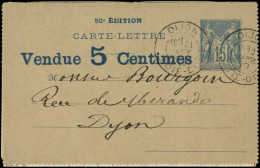 50e ÉDITION
CARTE-LETTRE
Vendue 5 Centimes
Monsieur Bourgoin
Rue de Mirande
Dijon
15
DIJON